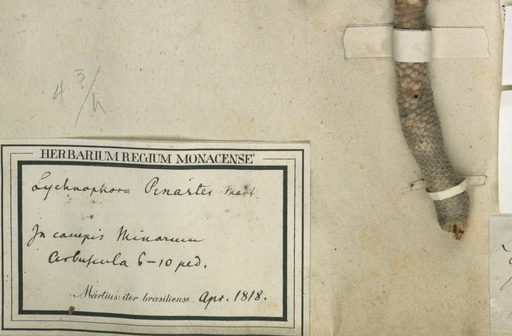 4 3/h
HERBARIUM REGIUM MONACENSE
Lychnophora Pinastes Mart.
In campis Minarum
Arbuscula 6-10 ped.
Martius: iter brasiliense. Apr. 1818.